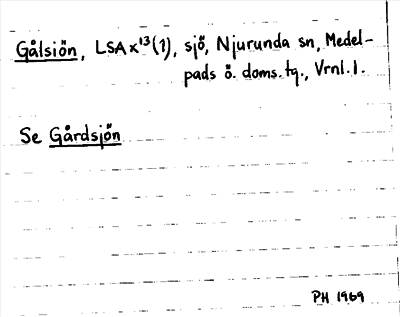 Gålsiön, LSA x¹³(1), sjö, Njurunda sn, Medel-
pads ö. doms. tg., Vrnl. 1.
Se Gårdsjön
PH 1969